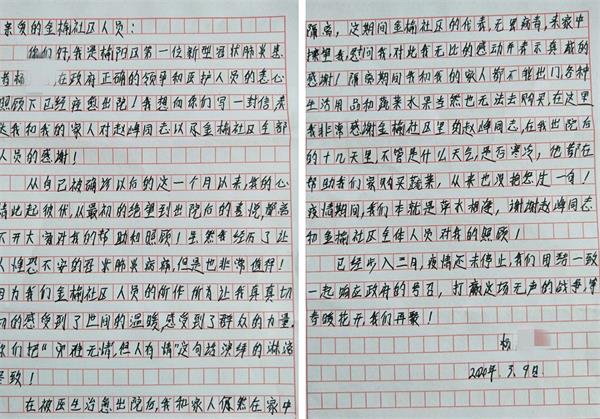 亲爱的金榆社区人员:
你们好,我是榆阳区第一位新型冠状肺炎患
者杨 在政府正确的领导和医护人员的悉心
照顾下已经痊愈出院!我想向你们写一封信表
达我和我的家人对赵峰同志以及金榆社区全部
人员的感谢!
从自己被确诊以后的这一个月以来,我的心
情起起伏伏,从最初的绝望到出院后的喜悦,都离
不开大家对我的帮助和照顾!虽然我经历了让
人惶恐不安的冠状肺炎病痛,但是也非常值得!
因为我们金榆社区人员的所作所为让我真真切
切的感受到了世间的温暖,感受到了群众的力量,
你们把"灾难无情,但人有情"这句话演绎的淋漓
尽致!
在被医生治愈出院后,我和家人依然在家中
隔离,这期间金榆社区的代表,无畏病毒,来家中
探望我,慰问我,对此我无比的感动并表示真诚的
感谢!隔离期间我和我的家人都不能出门,各种
生活用品和蔬菜水果当然也无法去购买,在这里
我非常感谢金榆社区里的赵峰同志,在我出院后
的十几天里,不管是什么天气,是否寒冷,他都在
帮助我们家购买蔬菜,从来也没抱怨过一句!
疫情期间,我们本就是萍水相逢,谢谢赵峰同志
和金榆社区全体人员对我的照顾!
已经步入三月,疫情还未停止,我们团结一致
一起响应政府的号召,打赢这场无声的战争,等
春暖花开,我们再聚!
杨
2020年.3.9日.